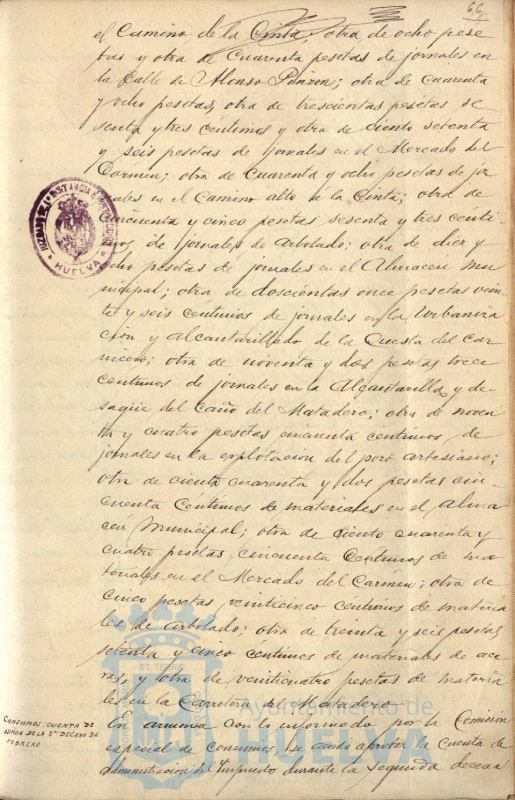 66
el Camino de la Cinta; otra de ocho pese
tas y otra de cuarenta pesetas de jornales en
la Calle de Alonso Pinzon; otra de cuarenta
y ocho pesetas, otra de trescientas pesetas se
senta y tres centimos y otra de ciento setenta
y seis pesetas de jornales en el Mercado del
Carmen; otra de cuarenta y ocho pesetas de jor
nales en el Camino alto a la Cinta; otra de
cincuenta y cinco pesetas sesenta y tres centi-
mos de jornales de arbolado; otra de diez y
ocho pesetas de jornales en el Almacen mu
nicipal; otra de doscientas once pesetas vein-
te y seis centimos de jornales en la Urbaniza
ción y alcantarillado de la Cuesta del Car
nicero; otra de noventa y dos pesetas trece
centimos de jornales en la Alcantarilla y de-
sagüe del Caño del Matadero; otra de noven
ta y cuatro pesetas cincuenta centimos de
jornales en la explotacion del pozo artesiano;
otra de ciento cuarenta y dos pesetas cin-
cuenta centimos de materiales en el Alma
cen Municipal; otra de ciento cuarenta y
cuatro pesetas cincuenta centimos de ma
teriales en el Mercado del Carmen; otra de
cinco pesetas veinticinco centimos de materia
les de arbolado; otra de treinta y seis pesetas
setenta y cinco centimos de materiales de ace
ras, y otra de veinticuatro pesetas de materia
les en la Carretera del Matadero.
En armonia con lo informado por la Comisión
especial de consumos, se acordó aprobar la cuenta de
administracion del impuesto durante la segunda decena
CONSUMOS: CUENTA DE
ADMON DE LA 2ª DECENA DE
FEBRERO
JUZGADO DE 1ª INSTANCIA E INSTRUCCION
HUELVA
Ayuntamiento de
HUELVA